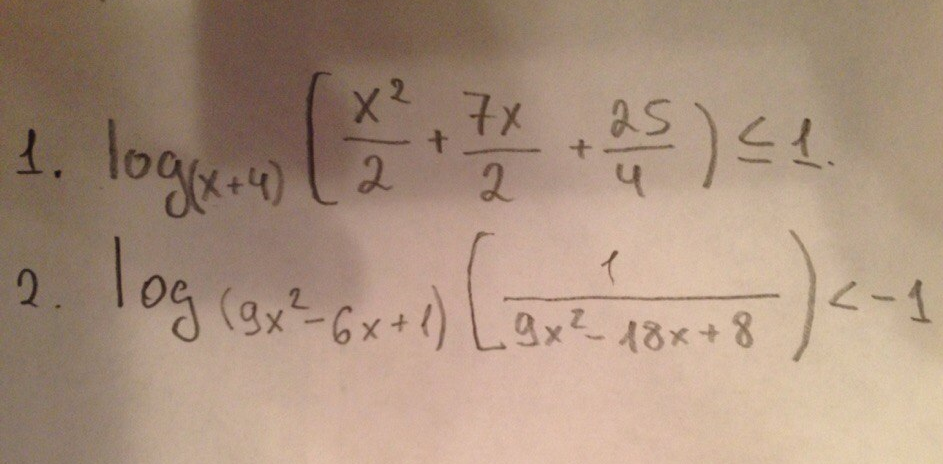 1. log_(x+4) (x²/2 + 7x/2 + 25/4) ≤ 1.
2. log_(9x²-6x+1) (1/(9x²-18x+8)) < -1